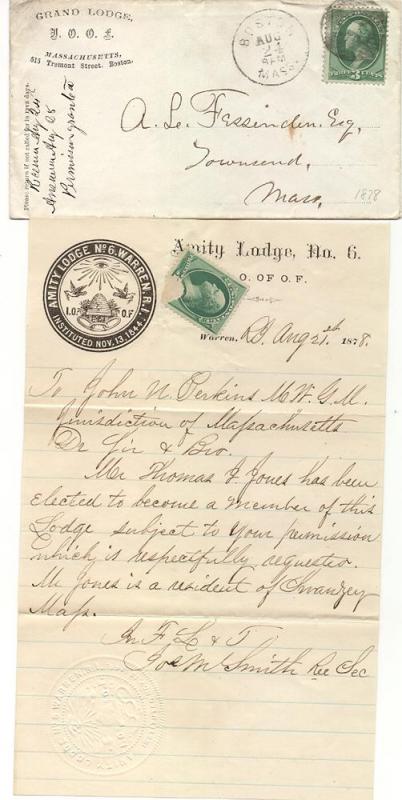 GRAND LODGE,
I. O. O. F.
MASSACHUSETTS,
515 Tremont Street, Boston.
Please return if not called for in seven days.
Answered Aug 28
Permission granted
BOSTON
AUG
24
MASS.
A. L. Fessinden, Esq,
Townsend,
Mass,
1878
AMITY LODGE Nº 6, WARREN, R.I.
I.O. O.F.
INSTITUTED NOV. 13. 1844.
Amity Lodge, No. 6.
O. OF O. F.
Warren, R.I. Aug 21st 1878.
To John N. Perkins M. W. G. M.
Jurisdiction of Massachusetts
Dr Sir & Bro.
Mr Thomas J Jones has been
Elected to become a member of this
Lodge subject to your permission
which is respectfully requested.
Mr Jones is a resident of Swanzey
Mass.
In F L & T
Jos M Smith Rec Sec